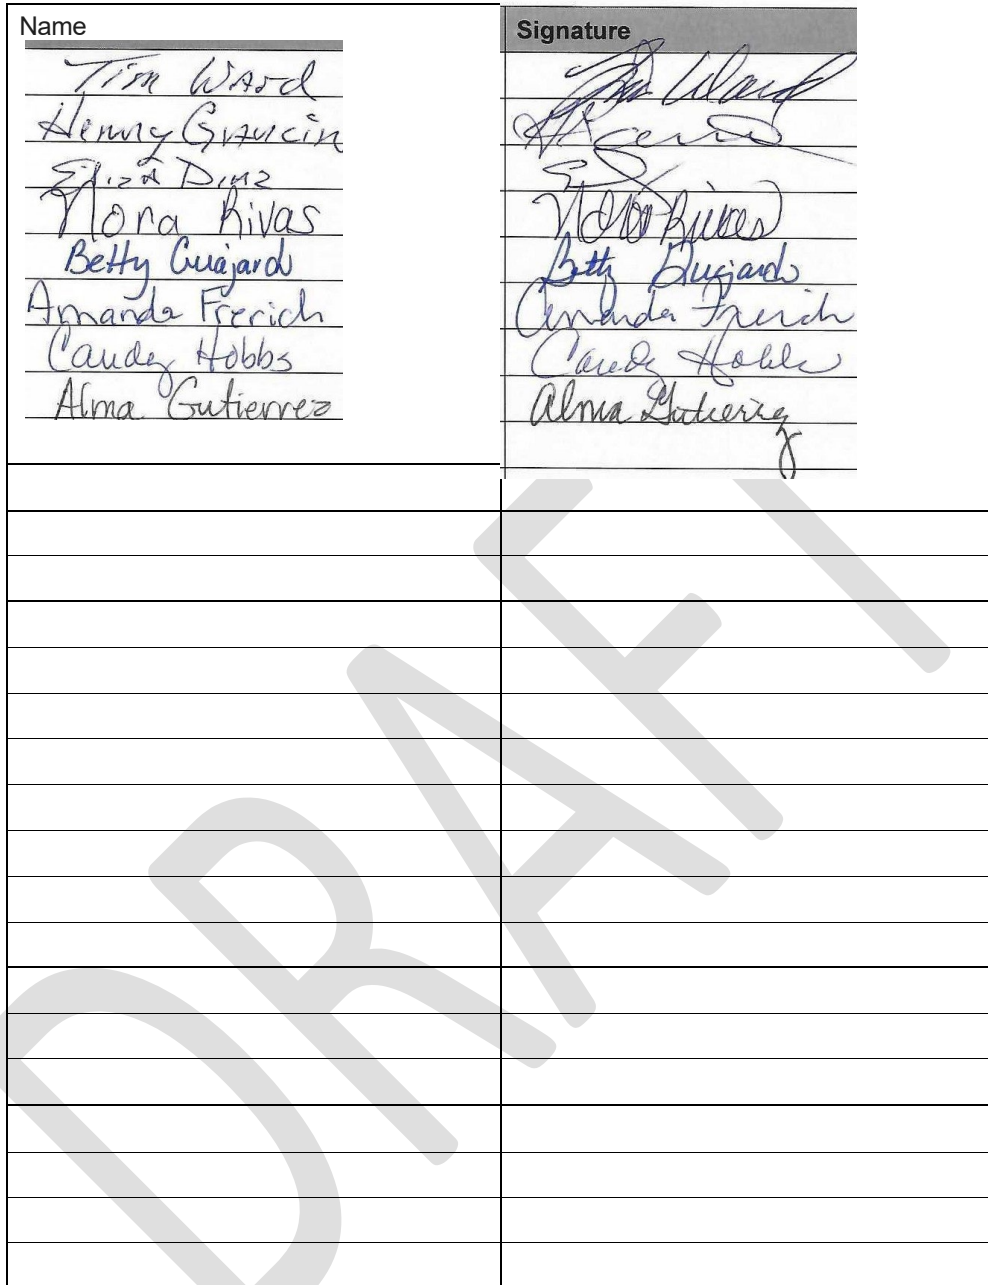 Name Signature
Tim Ward Tim Ward
Henry
Eliza Diaz
Nora Rivas Nora Rivas
Betty Guajardo Betty Guajardo
Amanda Frerich Amanda Frerich
Candy Hobbs Candy Hobbs
Alma Gutierrez Alma Gutierrez
DRAFT